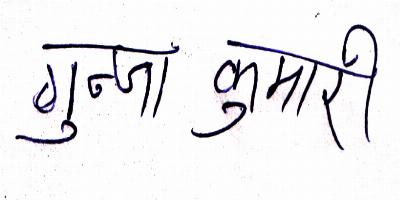 गुन्जा कुमारी